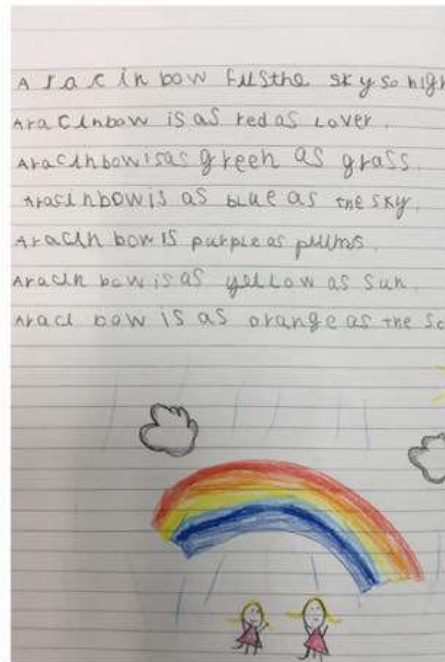 A racin bow fusthe sky so high
Aracinbow is as red as Lover.
Aracinbowisas green as grass.
Aracinbow is as blue as the sky.
Aracin bow is purple as plums.
Aracin bow is as yellow as sun.
Aracl bow is as orange as the